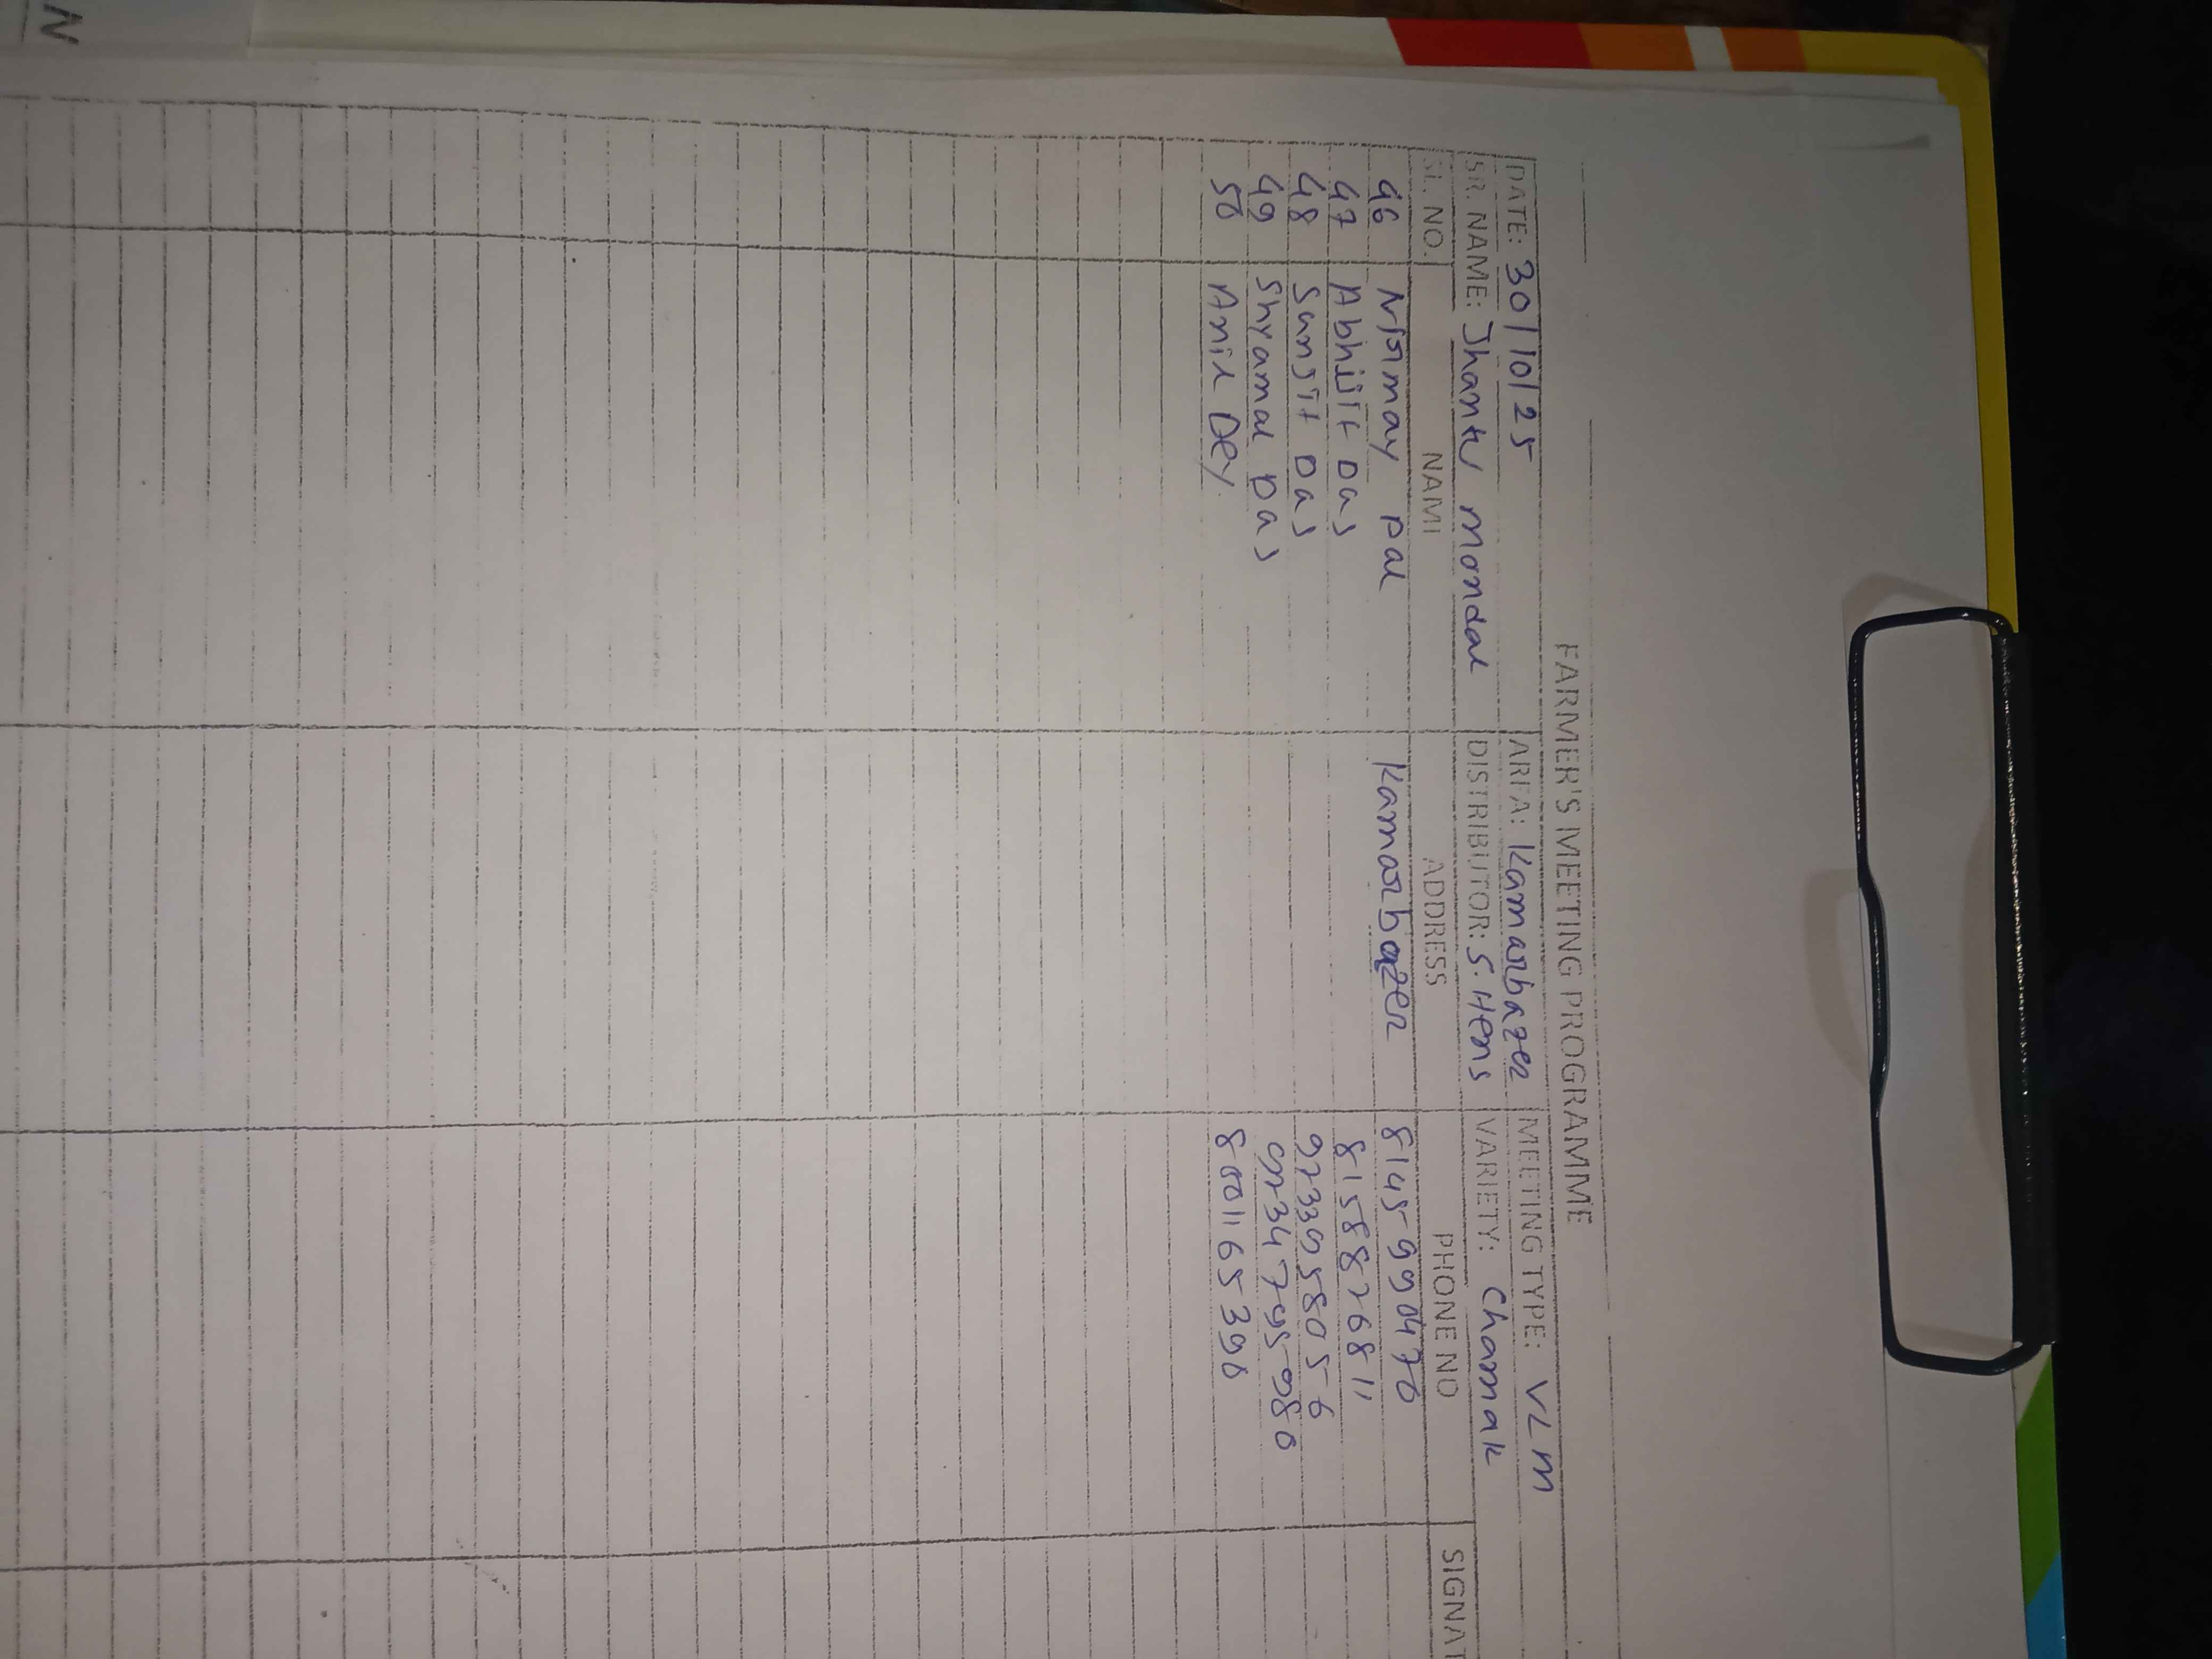 FARMER'S MEETING PROGRAMME
DATE: 30/10/25 AREA: Kamarbazer MEETING TYPE: VLM
SR. NAME: Jhantu mondal DISTRIBUTOR: S. Hens VARIETY: Chamak
SL. NO. NAME ADDRESS PHONE NO SIGNAT
46 Nirmay pal Kamarbazer 8145990470
47 Abhijit Das 8158826811
48 Sunjit Das 9233958056
49 Shyamal Das
50 Anil Dey 8001165390
N